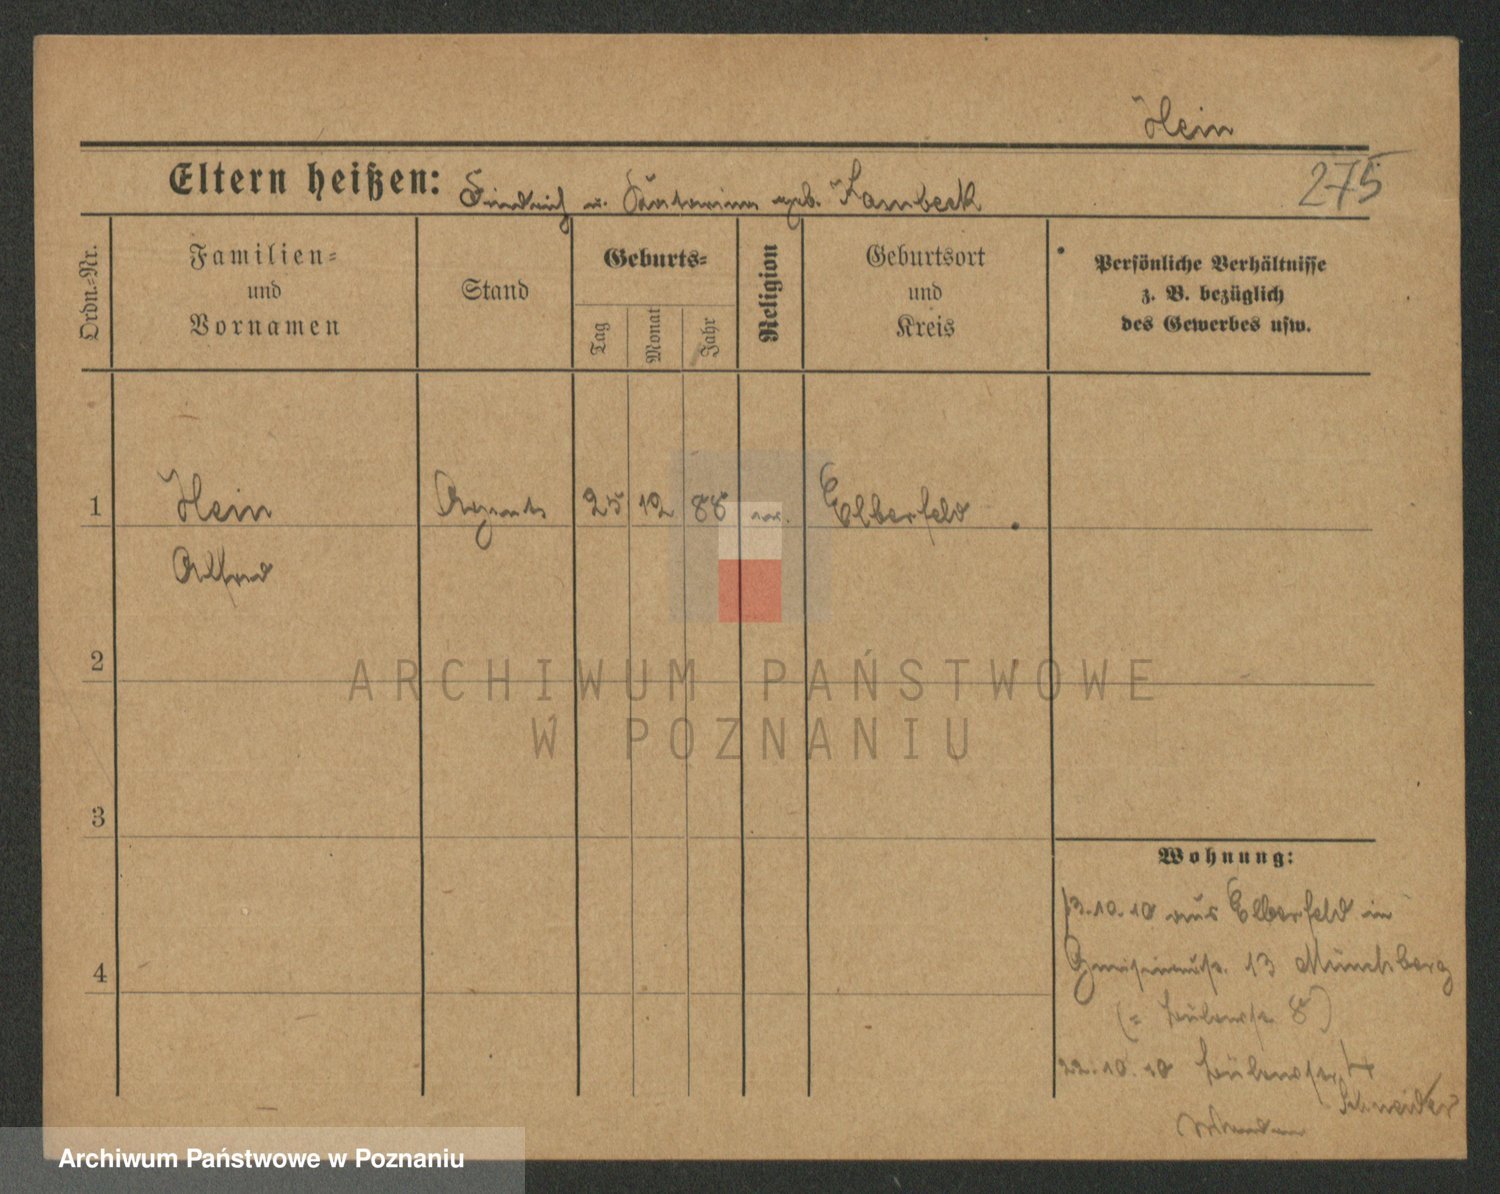 Hein
275
Eltern heißen: Friedrich u. geb. Lambeck
Ordn.-Nr.
Familien-
und
Vornamen
Stand
Geburts-
Tag
Monat
Jahr
Religion
Geburtsort
und
Kreis
Persönliche Verhältnisse
z. B. bezüglich
des Gewerbes usw.
1 Hein Agent 25 12 88 Elberfeld
Alfred
2
3
4
Wohnung:
13.10.10 aus Elberfeld in
Gneisenaustr. 13 Müncheberg
22.10.10
Schneider
ARCHIWUM PAŃSTWOWE
W POZNANIU
Archiwum Państwowe w Poznaniu